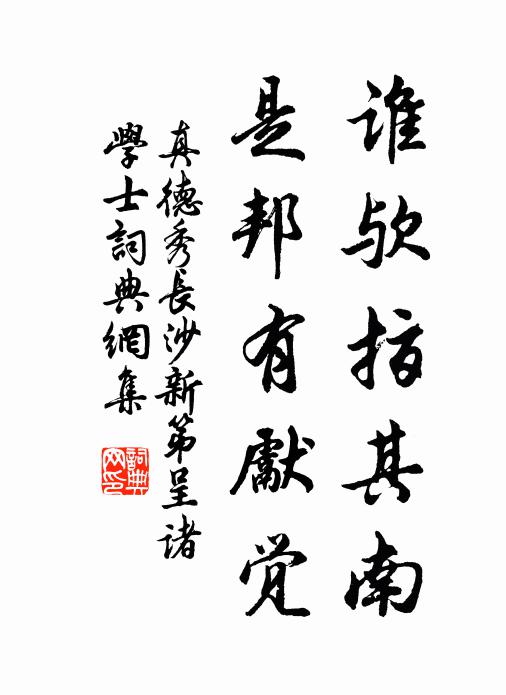 谁欤指其南
是邦有獻觉
真德秀長沙新第呈诸
學士詞典網集
詞典網印